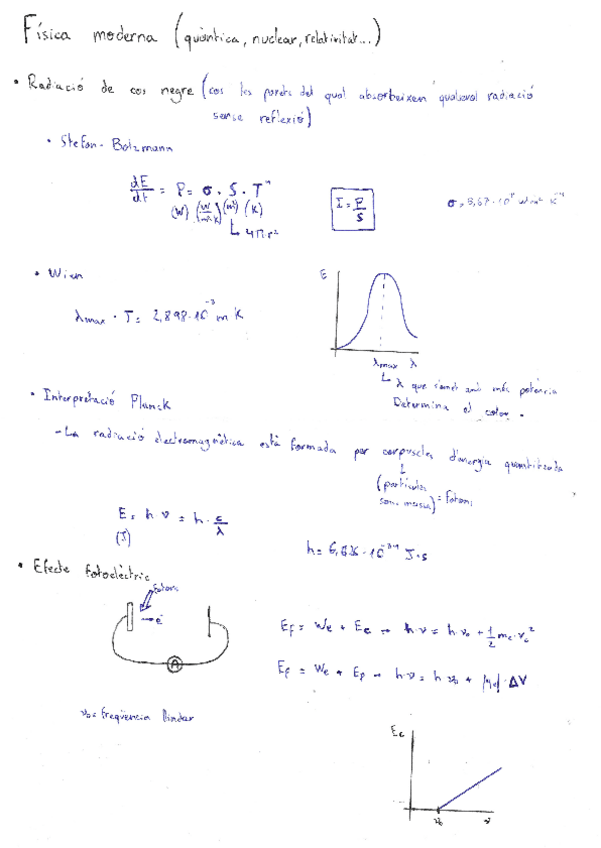 Física moderna (quàntica, nuclear, relativitat...)
• Radiació de cos negre (cos les parets del qual absorbeixen qualsevol radiació
sense reflexió)
• Stefan-Bolzmann
dE/dt = P = σ · S · T⁴
(W) (W/m²K) (m²) (K)
↳ 4πr²
I = P/S
σ = 5,67·10⁻⁸ W·m⁻² K⁻⁴
• Wien
λmax · T = 2,898·10⁻³ m K
E
λmax λ
↳ λ que s'emet amb més potència
Determina el color.
• Interpretació Planck
- La radiació electromagnètica està formada per corpuscles d'energia quantitzada
(partícules
sense massa) = fotons
E = h ν = h · c/λ
(J)
h = 6,626·10⁻³⁴ J·s
• Efecte fotoelèctric
fotons
→ e⁻
A
Ef = We + Ec → h·ν = h·ν₀ + ½ me·ve²
Ef = We + Ep → h·ν = h ν₀ + |qe|·ΔV
ν₀ = freqüència llindar
Ec
ν₀ ν